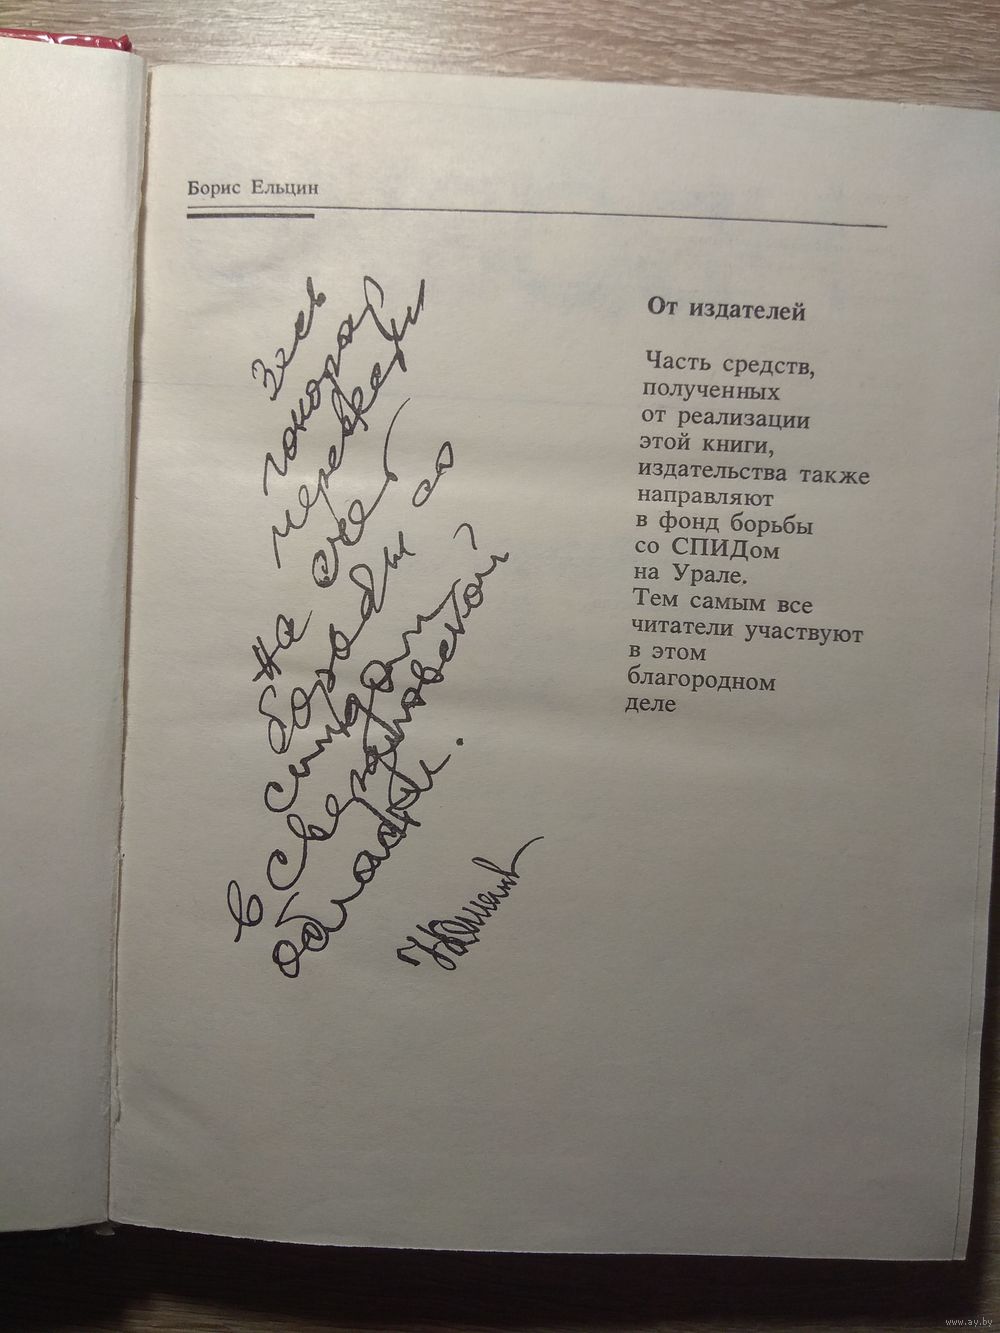 Борис Ельцин
Весь
гонорар
на счет
борьбы со
спидом
в Свердловской
области.
От издателей
Часть средств,
полученных
от реализации
этой книги,
издательства также
направляют
в фонд борьбы
со СПИДом
на Урале.
Тем самым все
читатели участвуют
в этом
благородном
деле
www.ay.by